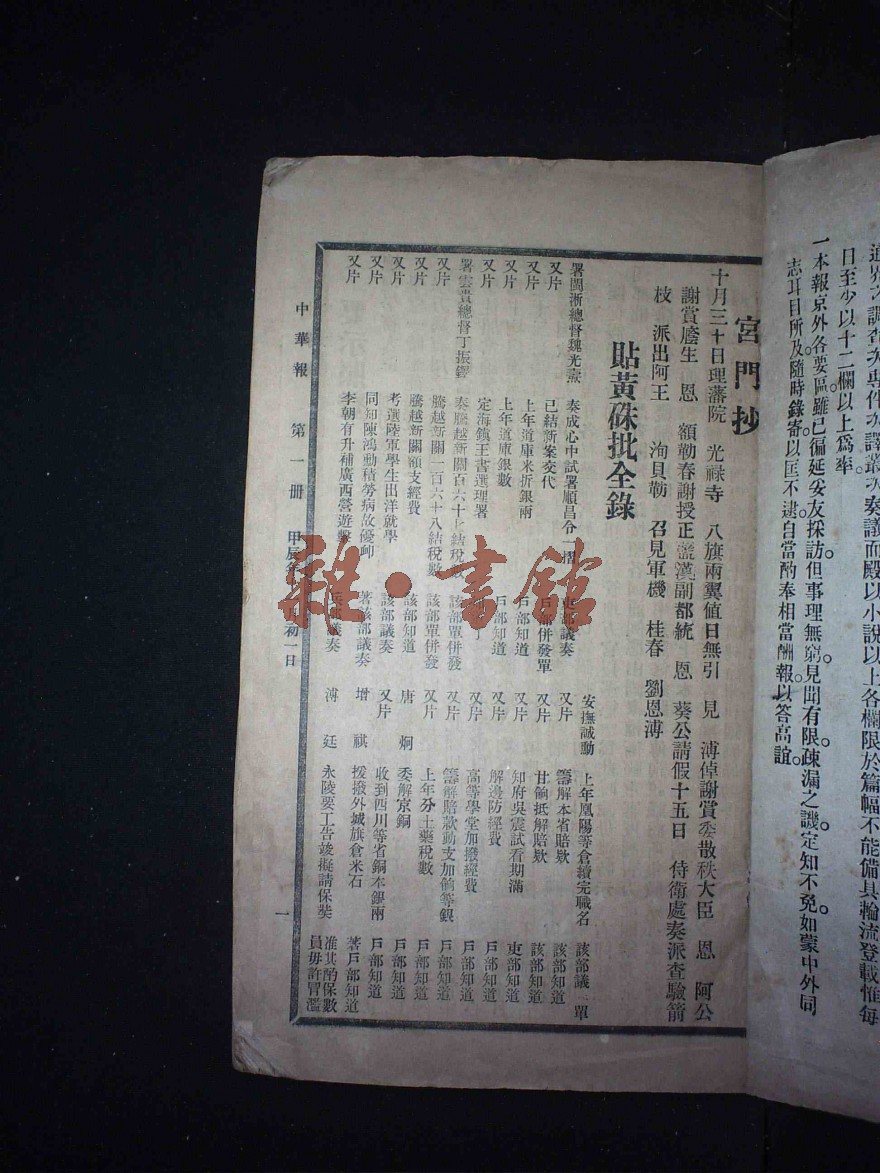 道界之調查次專件次譯叢次奏議而殿以小說以上各欄限於篇幅不能備具輪流登載惟每
日至少以十二欄以上爲率
一本報京外各要區雖已徧延妥友採訪但事理無窮見聞有限疎漏之譏定知不免如蒙中外同
志耳目所及隨時錄寄以匡不逮自當酌奉相當酬報以答高誼
宮門抄
十月三十日理藩院 光祿寺 八旗兩翼值日無引 見 溥倬謝賞委散秩大臣 恩 阿公
謝賞廕生 恩 額勒春謝授正藍漢副都統 恩 葵公請假十五日 侍衛處奏派查驗箭
枝 派出阿王 洵貝勒 召見軍機 桂春 劉恩溥
貼黃硃批全錄
署閩浙總督魏光燾 奏成心中試署順昌令一摺 吏部議奏
又片 已結新案交代 戶部併發單
又片 上年道庫米折銀兩 戶部知道
又片 上年道庫銀數 戶部知道
又片 定海鎮王書選理署
署雲貴總督丁振鐸 奏騰越新關百六十七結稅數 該部單併發
又片 騰越新關一百六十八結稅數 該部單併發
又片 騰越新關額支經費 該部知道
又片 考選陸軍學生出洋就學 該部議奏
又片 同知陳鴻勳積勞病故優卹 著該部議奏
又片 李朝有升補廣西營遊擊 兵部議奏
安撫誠勳 上年鳳陽等倉續完職名 該部議 單
又片 籌解本省賠欵 該部知道
又片 甘餉抵解賠欵 該部知道
又片 知府吳震試看期滿 吏部知道
又片 解邊防經費 戶部知道
又片 高等學堂加撥經費 戶部知道
又片 籌解賠款動支加餉等銀 戶部知道
又片 上年分土藥稅數 戶部知道
唐 炯 委解京銅 戶部知道
又片 收到四川等省銅本銀兩 戶部知道
增 祺 援撥外城旗倉米石 著戶部知道
溥 廷 永陵要工告竣擬請保奬 准其酌保數
員毋許冒濫
中華報 第一冊 甲辰年 月初一日
一
雜·書館